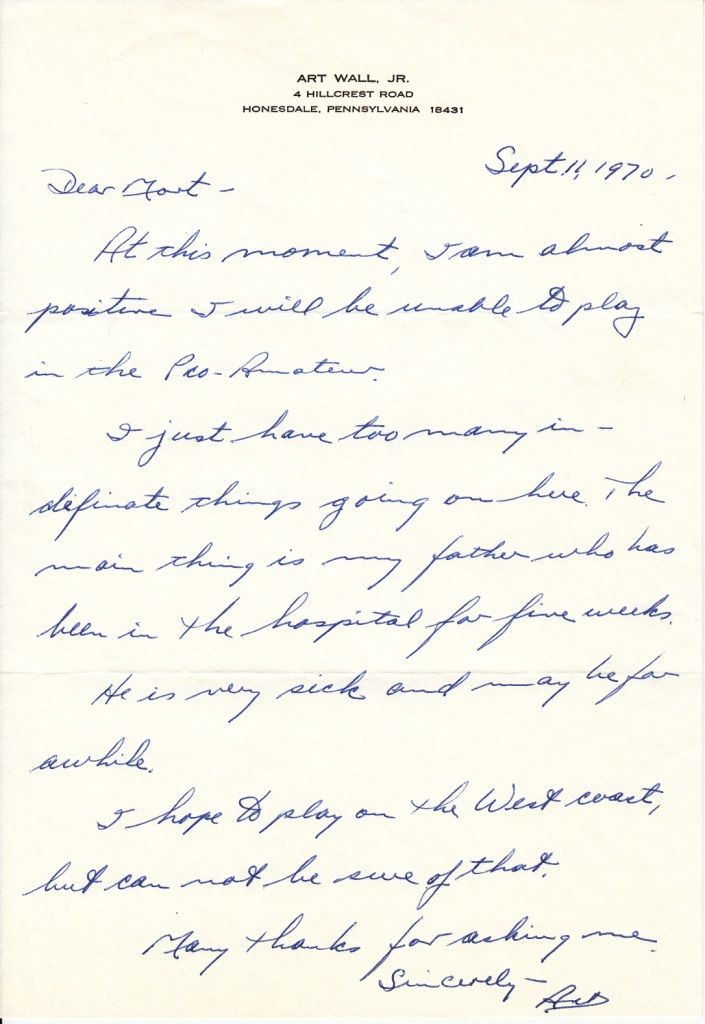 ART WALL, JR.
4 HILLCREST ROAD
HONESDALE, PENNSYLVANIA 18431
Sept. 11, 1970.
Dear Mort -
At this moment, I am almost
positive I will be unable to play
in the Pro-Amateur.
I just have too many in -
definate things going on here. The
main thing is my father who has
been in the hospital for five weeks.
He is very sick and may be for
awhile.
I hope to play on the West coast,
but can not be sure of that.
Many thanks for asking me.
Sincerely -
Art